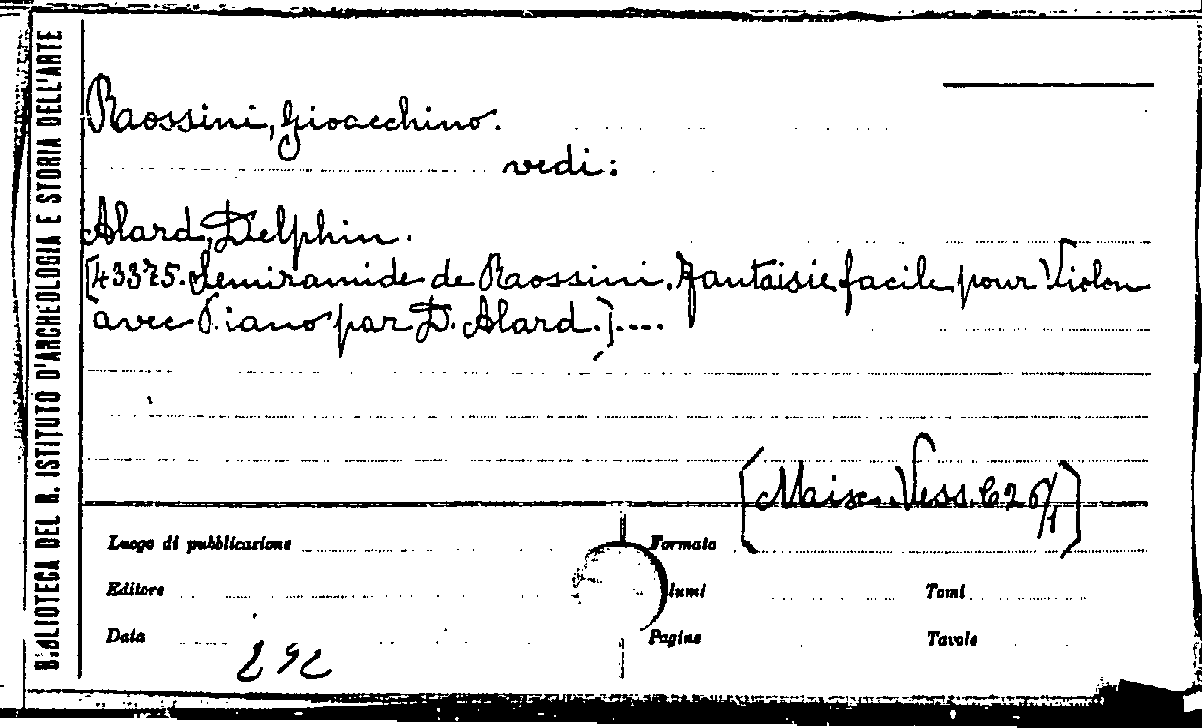 BIBLIOTECA DEL R. ISTITUTO D'ARCHEOLOGIA E STORIA DELL'ARTE
Rossini, Gioacchino.
vedi:
Alard, Delphin.
[43375. Semiramide de Rossini. Fantaisie facile pour Violon
avec Piano par D. Alard.]....
Vess.
Luogo di pubblicazione Formato
Editore lumi Tomi
Data Pagine Tavole